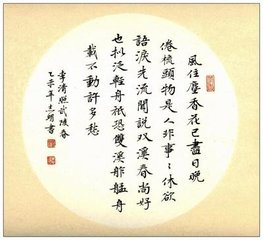 風住塵香花已盡日晚
倦梳頭物是人非事〻休欲
語淚先流聞說双溪春尚好
也拟泛輕舟祇恐雙溪舴艋舟
載不動許多愁
李清照武陵春
乙未年書